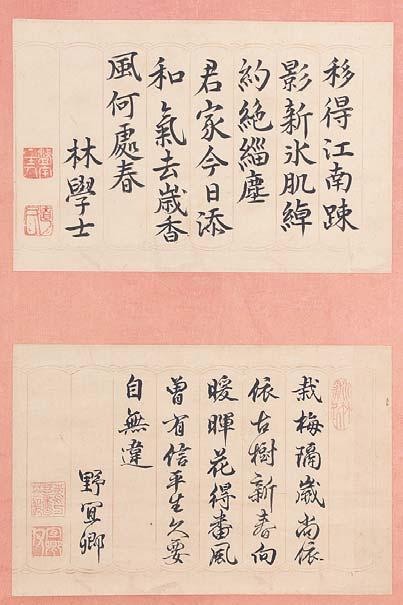 移得江南踈
影新氷肌綽
約絶緇塵
君家今日添
和氣去歳香
風何處春
林學士
栽梅隔歳尚依
依古樹新春向
暖暉花得番風
曽有信平生久要
自無違
野宜卿